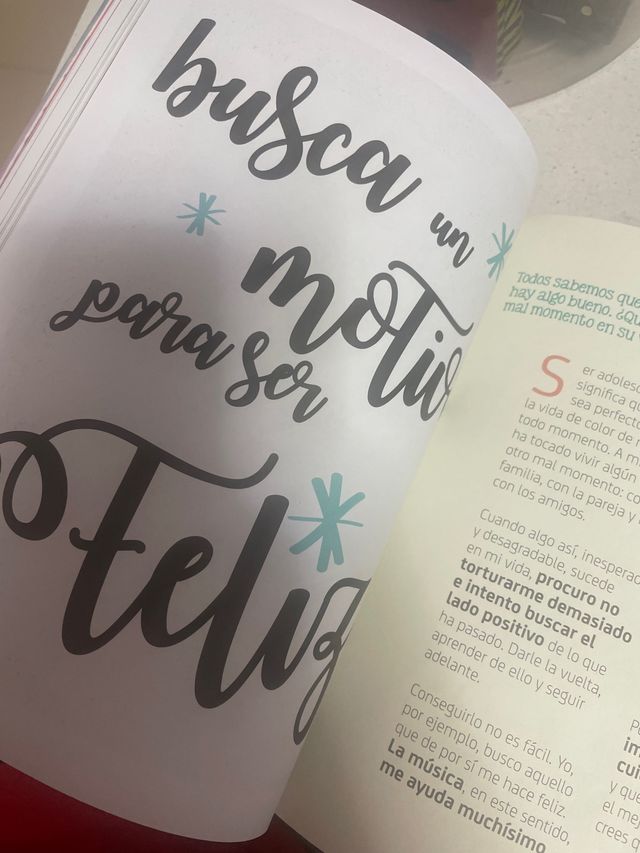 busca
un
motivo
para ser
Feliz
Todos sabemos que
hay algo bueno. ¿Qu
mal momento en su
Ser adolesc
significa qu
sea perfecto
la vida de color de r
todo momento. A m
ha tocado vivir algún
otro mal momento: co
familia, con la pareja y
con los amigos.
Cuando algo así, inesperad
y desagradable, sucede
en mi vida, procuro no
torturarme demasiado
e intento buscar el
lado positivo de lo que
ha pasado. Darle la vuelta,
aprender de ello y seguir
adelante.
Conseguirlo no es fácil. Yo,
por ejemplo, busco aquello
que de por sí me hace feliz.
La música, en este sentido,
me ayuda muchísimo
im
cui
y que
el mej
crees q